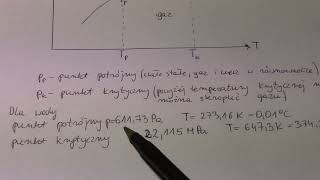 Pp
gaz
Tp
Tk
T
Pp - punkt potrójny (ciało stałe, gaz i ciecz w równowadze)
Pk - punkt krytyczny (powyżej temperatury krytycznej nie można skroplić gazu)
Dla wody
punkt potrójny p=611,73 Pa T = 273,16K - 0,01°C
punkt krytyczny 22,115 MPa T = 647,3K = 374,